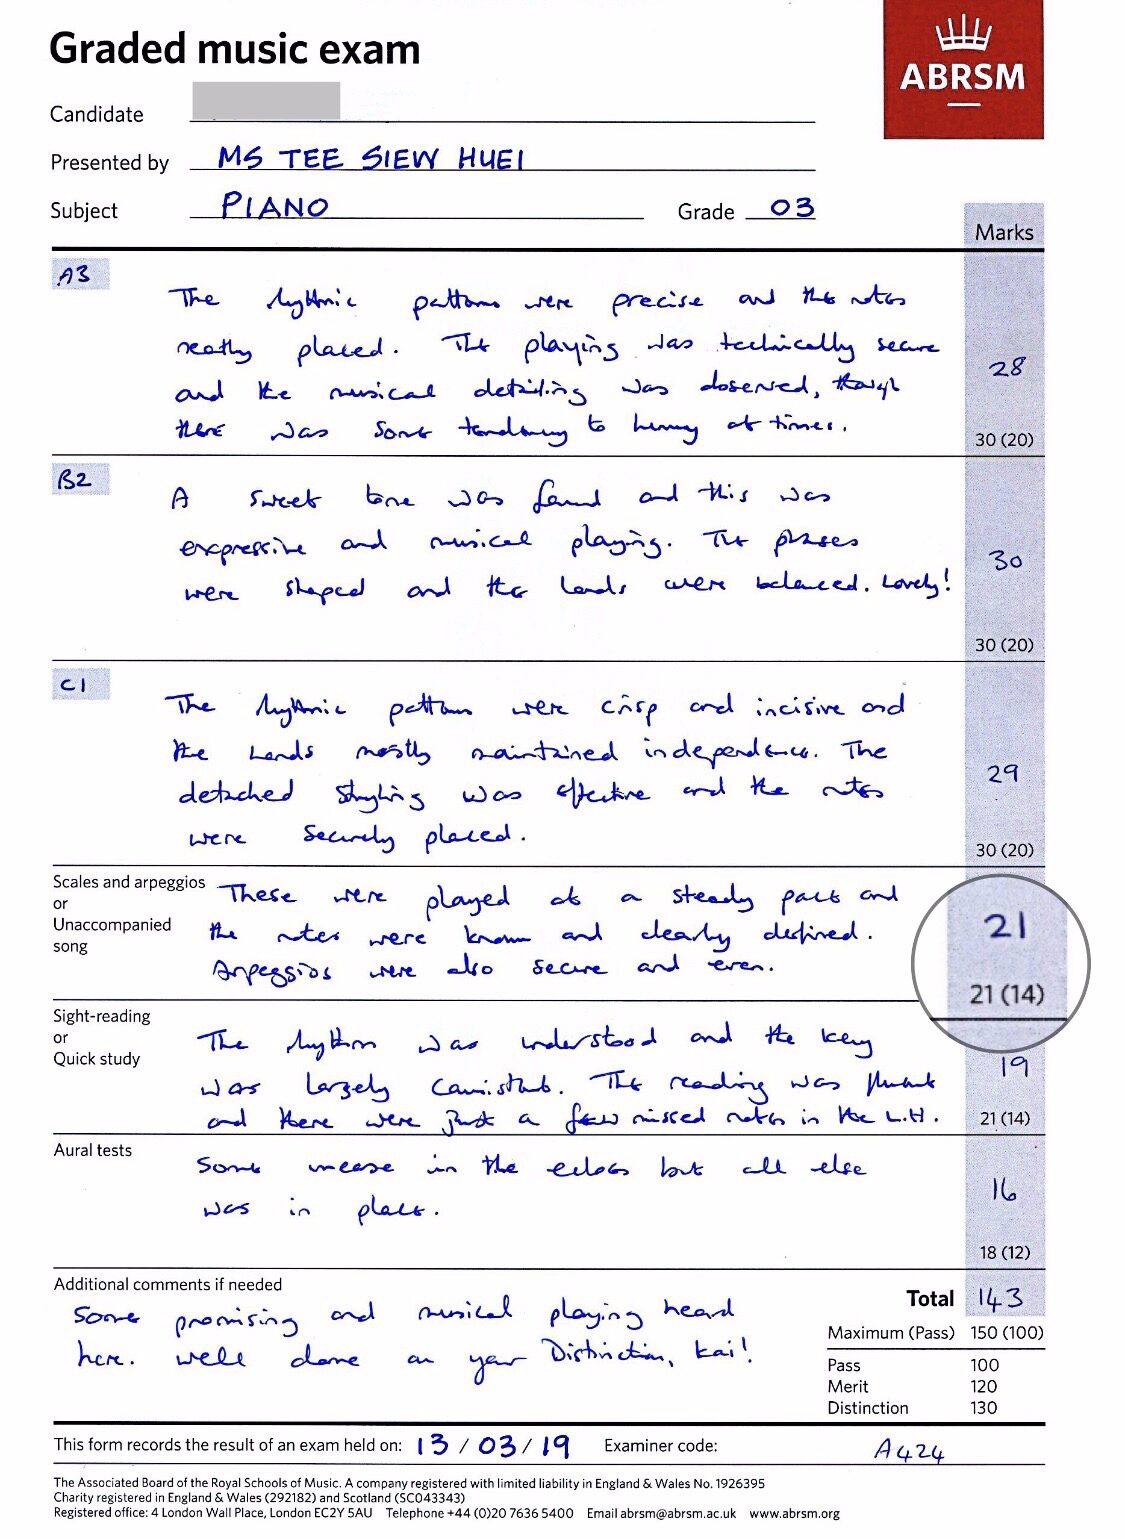 Graded music exam
ABRSM
Candidate
Presented by MS TEE SIEW HUEI
Subject PIANO Grade 03
Marks
A3
The rhythmic patterns were precise and the notes
neatly placed. The playing was technically secure
and the musical detailing was observed, though
there was some tendency to hurry at times.
28
30 (20)
B2
A sweet tone was found and this was
expressive and musical playing. The phrases
were shaped and the hands were balanced. Lovely!
30
30 (20)
C1
The rhythmic pattern were crisp and incisive and
the hands mostly maintained independence. The
detached styling was effective and the notes
were securely placed.
29
30 (20)
Scales and arpeggios
or
Unaccompanied
song
These were played at a steady pace and
the notes were known and clearly defined.
Arpeggios were also secure and even.
21
21 (14)
Sight-reading
or
Quick study
The rhythm was understood and the key
was largely consistent. The reading was fluent
and there were just a few missed notes in the L.H.
19
21 (14)
Aural tests
Some unease in the echoes but all else
was in place.
16
18 (12)
Additional comments if needed
Some promising and musical playing heard
here. Well done on your Distinction, Kai!
Total 143
Maximum (Pass) 150 (100)
Pass 100
Merit 120
Distinction 130
This form records the result of an exam held on: 13 / 03 / 19 Examiner code: A424
The Associated Board of the Royal Schools of Music. A company registered with limited liability in England & Wales No. 1926395
Charity registered in England & Wales (292182) and Scotland (SC043343)
Registered office: 4 London Wall Place, London EC2Y 5AU Telephone +44 (0)20 7636 5400 Email abrsm@abrsm.ac.uk www.abrsm.org